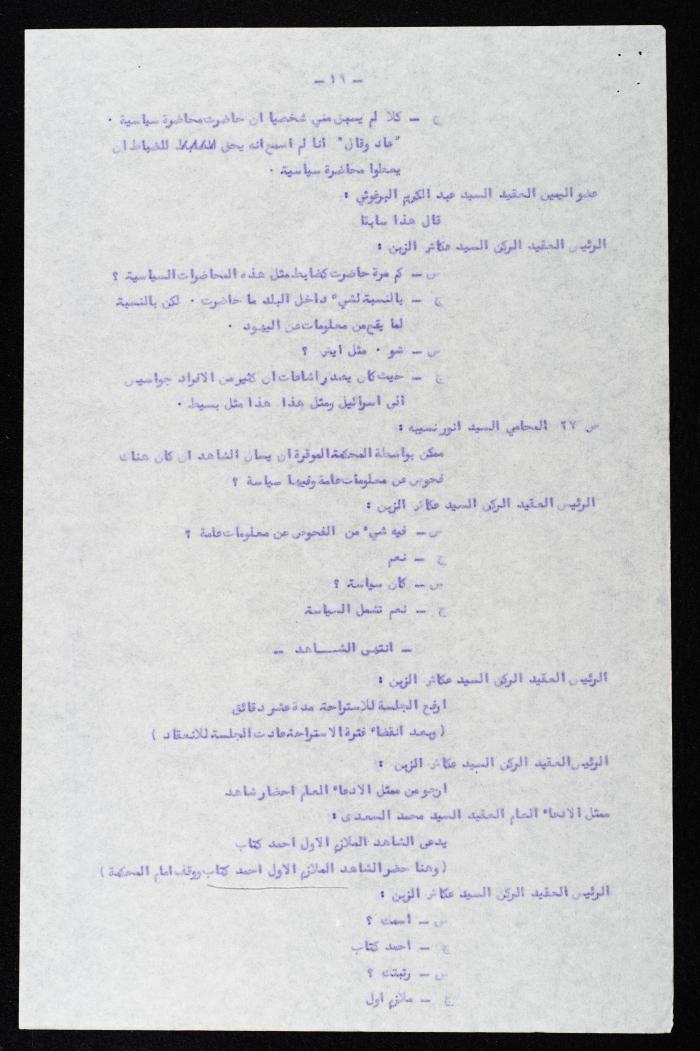 - ١١ -
ج - كلا لم يسبق مني شخصيا ان حاضرت محاضرة سياسية .
"عاد وقال" انا لم اسمع انه يحق للضباط ان
يعطوا محاضرة سياسية .
عضو اليمين العقيد السيد عبد الكريم البرغوثي :
قال هذا سابقا
الرئيس العقيد الركن السيد عكاش الزبن :
س - كم مرة حاضرت كضابط مثل هذه المحاضرات السياسية ؟
ج - بالنسبة لشيء داخل البلد ما حاضرت . لكن بالنسبة
لما يقع من معلومات عن اليهود .
س - شو . مثل ايش ؟
ج - حيث كان يصدر اشاعات ان كثير من الافراد جواسيس
الى اسرائيل ومثل هذا هذا مثل بسيط .
س ٢٧ المحامي السيد انور نسيبه :
ممكن بواسطة المحكمة الموقرة ان يسأل الشاهد ان كان هناك
فحوص عن معلومات عامة وفيها سياسة ؟
الرئيس العقيد الركن السيد عكاش الزبن :
س - فيه شيء من الفحوص عن معلومات عامة ؟
ج - نعم
س - كان سياسة ؟
ج - نعم تشمل السياسة
- انتهى الشـــاهد -
الرئيس العقيد الركن السيد عكاش الزبن :
ارفع الجلسة للاستراحة مدة عشر دقائق
( وبعد انقضاء فترة الاستراحة عادت الجلسة للانعقاد )
الرئيس العقيد الركن السيد عكاش الزبن :
ارجو من ممثل الادعاء العام احضار شاهد
ممثل الادعاء العام العقيد السيد محمد السعدى :
يدعى الشاهد الملازم الاول احمد كتاب
( وهنا حضر الشاهد الملازم الاول احمد كتاب ووقف امام المحكمة )
الرئيس العقيد الركن السيد عكاش الزبن :
س - اسمك ؟
ج - احمد كتاب
س - رتبتك ؟
ج - ملازم اول